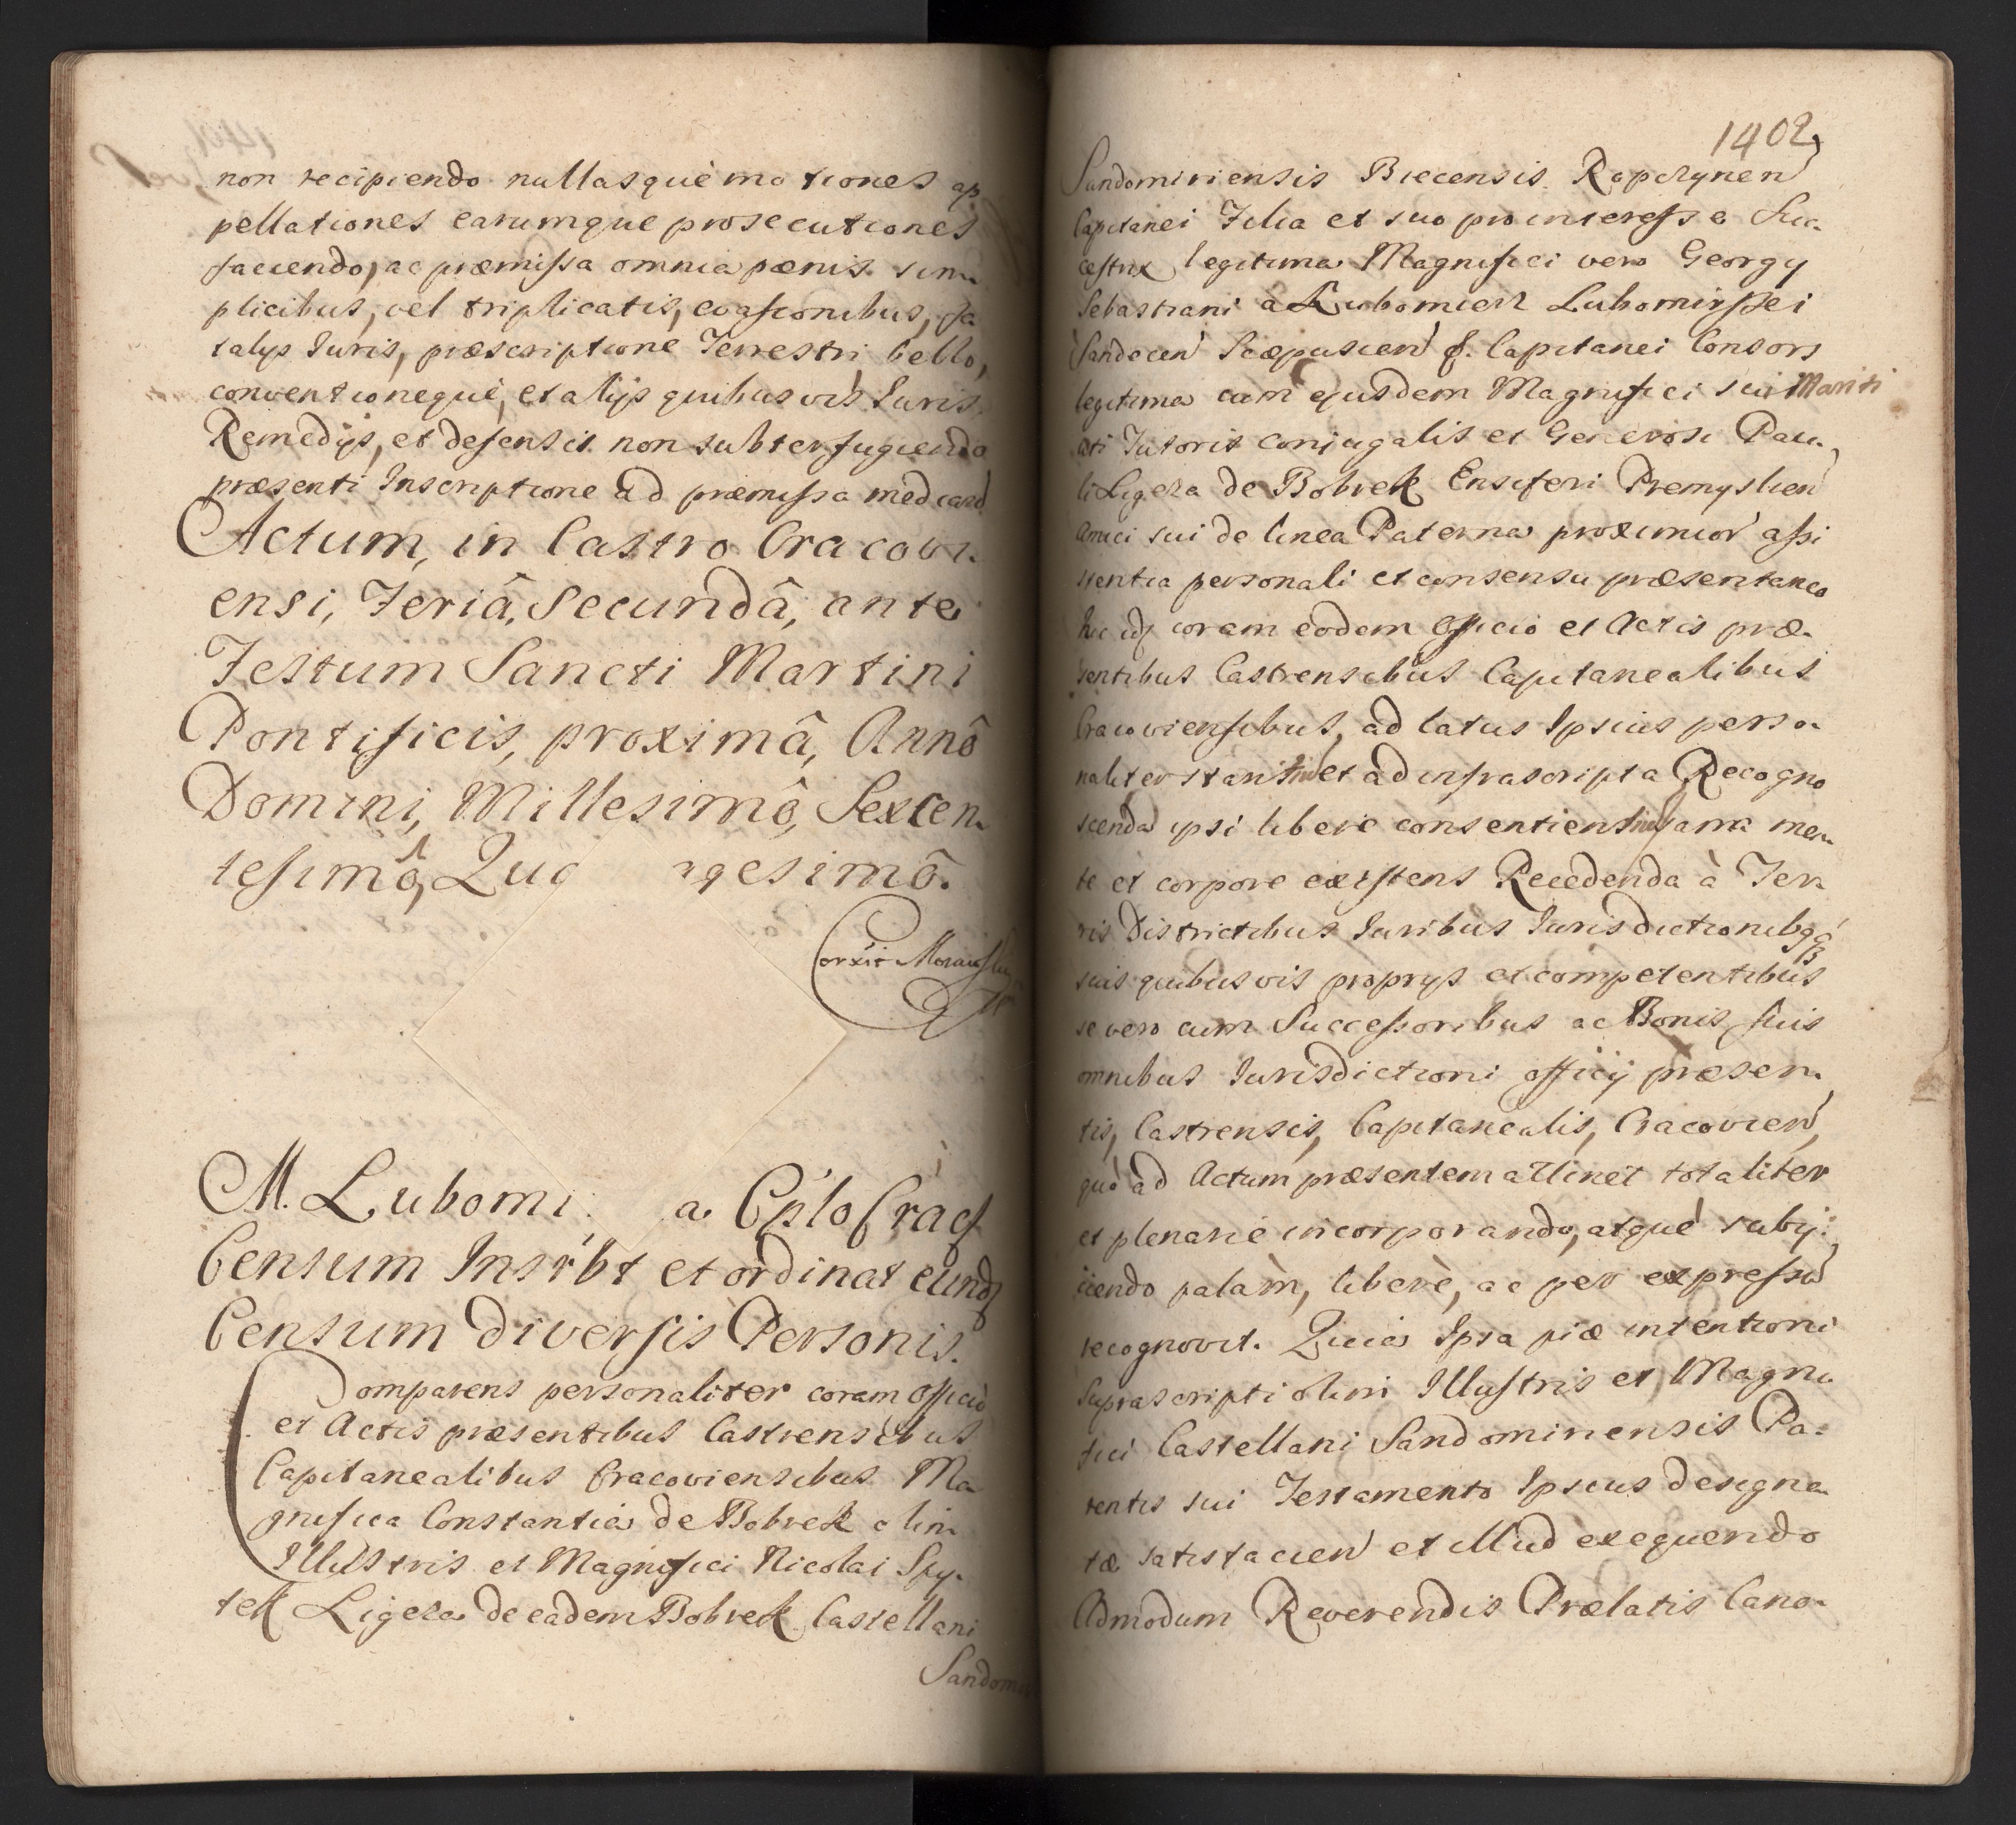 non recipiendo nullasque motiones ap
pellationes earumque prosecutiones
faciendo, ac præmissa omnia pænis sim
plicibus, vel triplicatis, evasionibus, fa
talijs Iuris, præscriptione Terrestri bello,
conventioneque, et alijs quibusvis Iuris
Remedijs, et defensis non subterfugiendo
præsenti Inscriptione ad præmissa mediand
Actum, in Castro Cracovi
ensi, Feriâ, Secundâ, ante
Festum Sancti Martini
Pontificis, proximâ, Annô
Domini, Millesimô, Sexcen
tesimô, Qua gesimô.
Corxit
M. Lubomi a Cplo Crac
Censum Inscrbt et ordinat eund
Censum diversis Personis.
Comparens personaliter coram officio
et Actis præsentibus Castrensibus
Capitanealibus Cracoviensibus Ma
gnifica Constantia de Bobrek olim
Illustris et Magnifici Nicolai Spy
tek Ligeza de eadem Bobrek Castellani
Sandom
1402
Sandomiriensis Biecensis Ropczynen
Capitanei Filia et suo pro interesse Suc
cestrix legitima Magnifici vero Georgy
Sebastiani a Lubomierz Lubomirssei
Sandecen Scepusien &. Capitanei Consors
legitima cum ejusdem Magnifici sui Mariti
ati Tutoris conjugalis et Generosi Pau
li Ligeza de Bobrek Ensiferi Premyslien
Amici sui de linea Paterna proximior assi
stentia personali et consensu præsentaneo
hic idq coram eodem officio et Actis præ
sentibus Castrensibus Capitanealibus
Cracoviensibus, ad latus Ipsius perso
naliter stantium et ad infrascripta Recogno
scenda ipsi libere consentientium sana men
te et corpore existens Recedenda à Ter
ris Districtibus Iuribus Iurisdictionibq
suis quibusvis proprijs et competentibus
se vero cum Successoribus ac Bonis suis
omnibus Iurisdictioni officij præsen
tis, Castrensis, Capitanealis, Cracovien,
quò ad Actum præsentem attinet totaliter
et plenarie incorporando, atque subij
ciendo palàm, liberè, ac per expressu
recognovit. Quia Ipsa piæ intentioni
suprascripti olim Illustris et Magni
fici Castellani Sandomiriensis Pa
rentis sui Testamento Ipsius designa
tæ satisfacien et illud exequendo
Admodum Reverendis Prælatis Cano